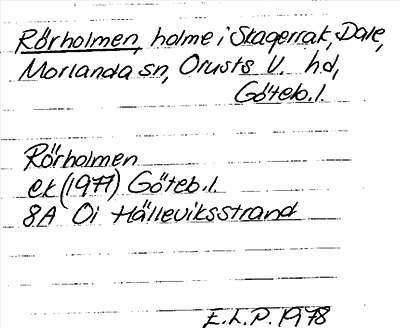 Rörholmen, holme i Skagerrak, Dale,
Morlanda sn, Orusts V. hd,
Göteb.l.
Rörholmen
ek (1977) Göteb.l.
8A Oi Hälleviksstrand
E.L.P. 1978